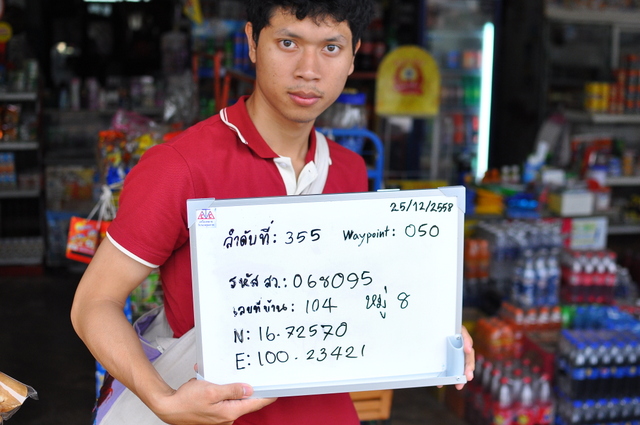 25/12/2558
ลำดับที่: 355 Waypoint: 050
รหัส สว.: 068095
เลขที่บ้าน: 104 หมู่ 8
N: 16.72570
E: 100.23421